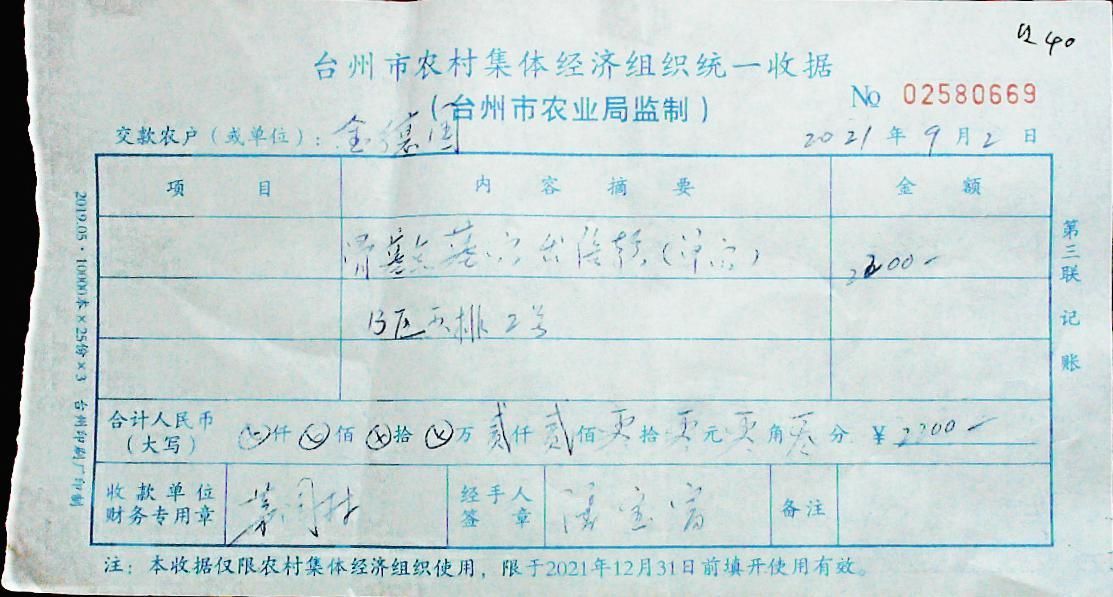 台州市农村集体经济组织统一收据
(台州市农业局监制)
№ 02580669
交款农户(或单位): 金德国
2021年9月2日
项目 内容摘要 金额
墓穴出售款(单穴) 2200-
B区五排2号
合计人民币(大写) 仟 佰 拾 万 贰仟贰佰零拾零元零角零分 ¥2200-
收款单位财务专用章
经手人签章
备注
注:本收据仅限农村集体经济组织使用,限于2021年12月31日前填开使用有效。
第三联 记账
2019.05·10000本×25份×3 台州印刷厂印制